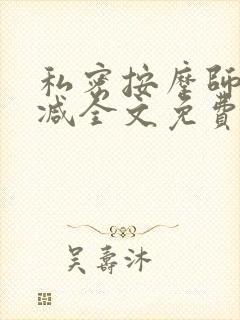 私密按摩師
减全文免費
吴壽沐